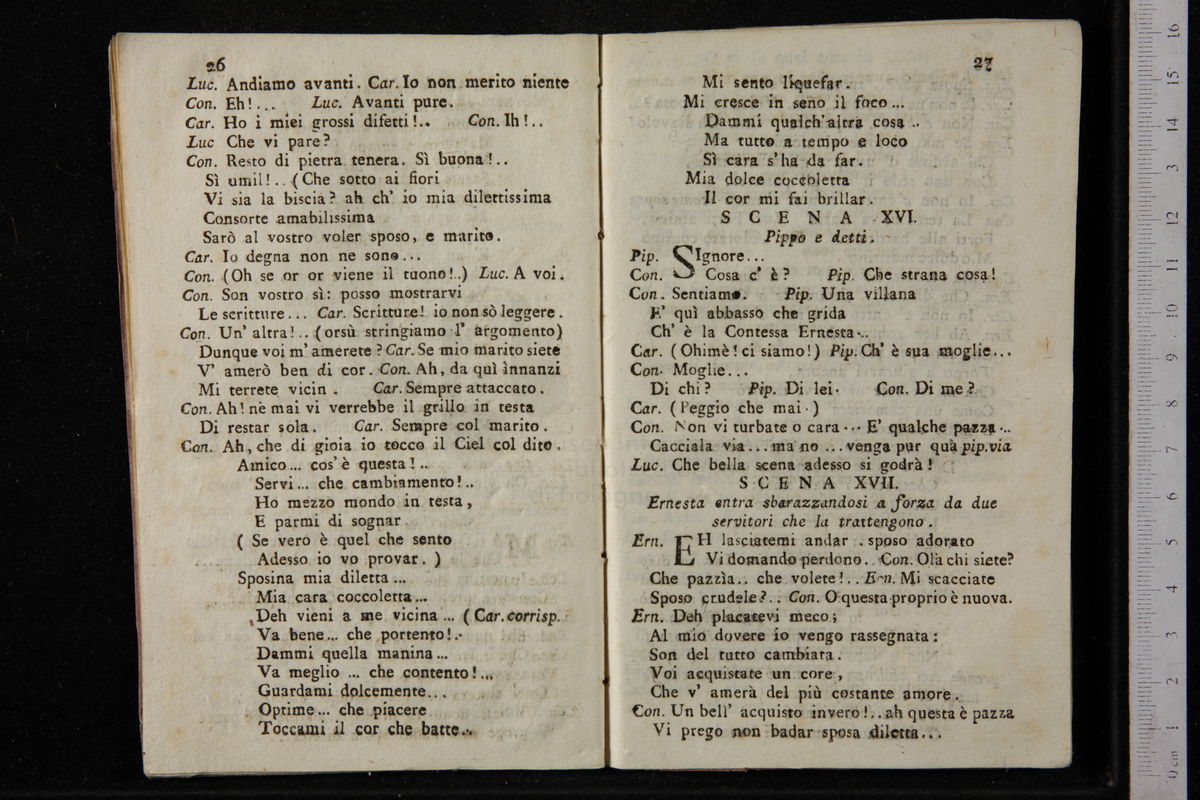 26
Luc. Andiamo avanti. Car. Io non merito niente
Con. Eh!... Luc. Avanti pure.
Car. Ho i miei grossi difetti!.. Con. Ih!..
Luc Che vi pare?
Con. Resto di pietra tenera. Sì buona!..
Sì umil!.. (Che sotto ai fiori
Vi sia la biscia? ah ch' io mia dilettissima
Consorte amabilissima
Sarò al vostro voler sposo, e marito.
Car. Io degna non ne sono...
Con. (Oh se or or viene il tuono!..) Luc. A voi.
Con. Son vostro sì: posso mostrarvi
Le scritture... Car. Scritture! io non sò leggere.
Con. Un' altra!.. (orsù stringiamo l' argomento)
Dunque voi m' amerete? Car. Se mio marito siete
V' amerò ben di cor. Con. Ah, da quì innanzi
Mi terrete vicin. Car. Sempre attaccato.
Con. Ah! nè mai vi verrebbe il grillo in testa
Di restar sola. Car. Sempre col marito.
Con. Ah, che di gioia io tocco il Ciel col dito.
Amico... cos' è questa!..
Servi... che cambiamento!..
Ho mezzo mondo in testa,
E parmi di sognar
( Se vero è quel che sento
Adesso io vo provar. )
Sposina mia diletta...
Mia cara coccoletta...
Deh vieni a me vicina... (Car. corrisp.
Va bene... che portento!..
Dammi quella manina...
Va meglio ... che contento!...
Guardami dolcemente...
Optime... che piacere
Toccami il cor che batte...
27
Mi sento liquefar.
Mi cresce in seno il foco...
Dammi qualch' altra cosa ..
Ma tutto a tempo e loco
Sì cara s' ha da far.
Mia dolce coccoletta
Il cor mi fai brillar.
SCENA XVI.
Pippo e detti.
Pip. SIgnore...
Con. Cosa c' è? Pip. Che strana cosa!
Con. Sentiamo. Pip. Una villana
E' quì abbasso che grida
Ch' è la Contessa Ernesta...
Car. (Ohimè! ci siamo!) Pip. Ch' è sua moglie...
Con. Moglie...
Di chi? Pip. Di lei. Con. Di me?
Car. (Peggio che mai.)
Con. Non vi turbate o cara... E' qualche pazza...
Cacciala via... ma no ... venga pur quà pip. via
Luc. Che bella scena adesso si godrà!
SCENA XVII.
Ernesta entra sbarazzandosi a forza da due
servitori che la trattengono.
Ern. EH lasciatemi andar . sposo adorato
Vi domando perdono. Con. Olà chi siete?
Che pazzìa.. che volete!.. Ern. Mi scacciate
Sposo crudele?.. Con. O questa proprio è nuova.
Ern. Deh placatevi meco;
Al mio dovere io vengo rassegnata:
Son del tutto cambiata.
Voi acquistate un core,
Che v' amerà del più costante amore.
Con. Un bell' acquisto invero!.. ah questa è pazza
Vi prego non badar sposa diletta...
0 cm 1 2 3 4 5 6 7 8 9 10 11 12 13 14 15 16